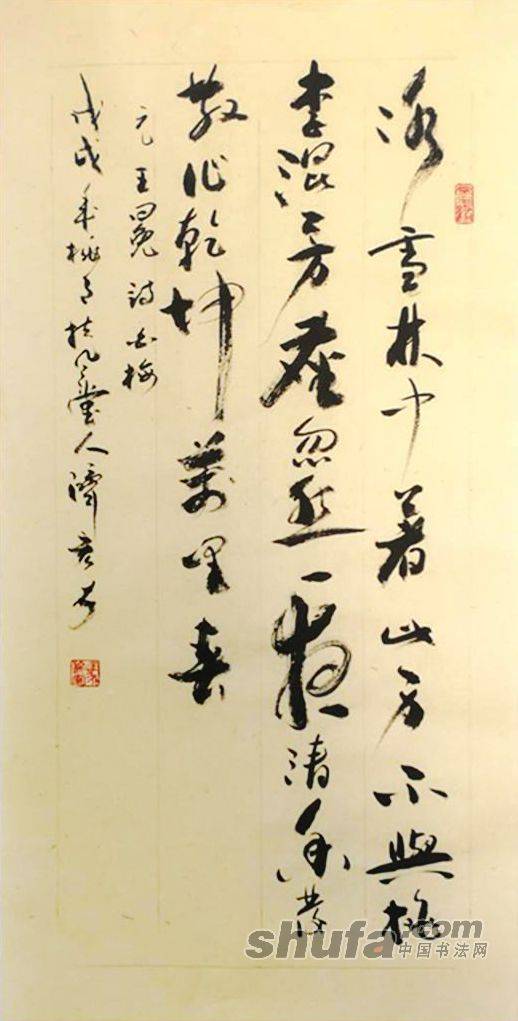 冰雪林中著此身不與桃
李混芳塵忽然一夜清香發
散作乾坤萬里春
元王冕詩白梅
戊戌年桃月扶風堂人濟
shufa.com
中国书法网